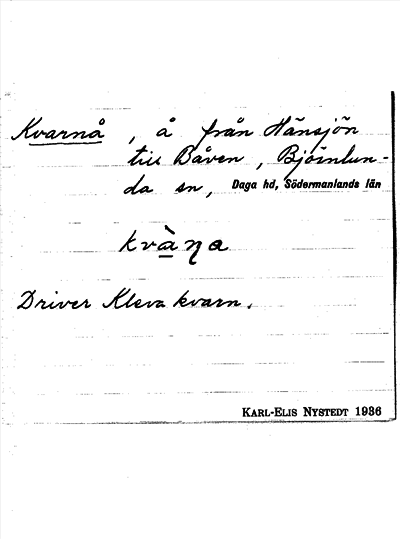 Kvarnå, å från Hänsjön
till Båven, Björnlun-
da sn, Daga hd, Södermanlands län
kvàṇa
Driver Kleva kvarn.
KARL-ELIS NYSTEDT 1936